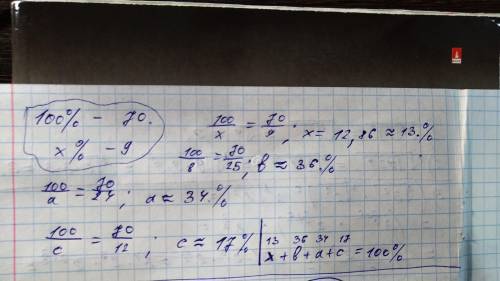 100% - 70.
x% - 9
100/x = 70/9; x = 12,86 ≈ 13.%
100/в = 70/25; в ≈ 36.%
100/a = 70/24; a ≈ 34.%
100/c = 70/12; c ≈ 17%
13 36 34 17
x+в+a+c = 100%